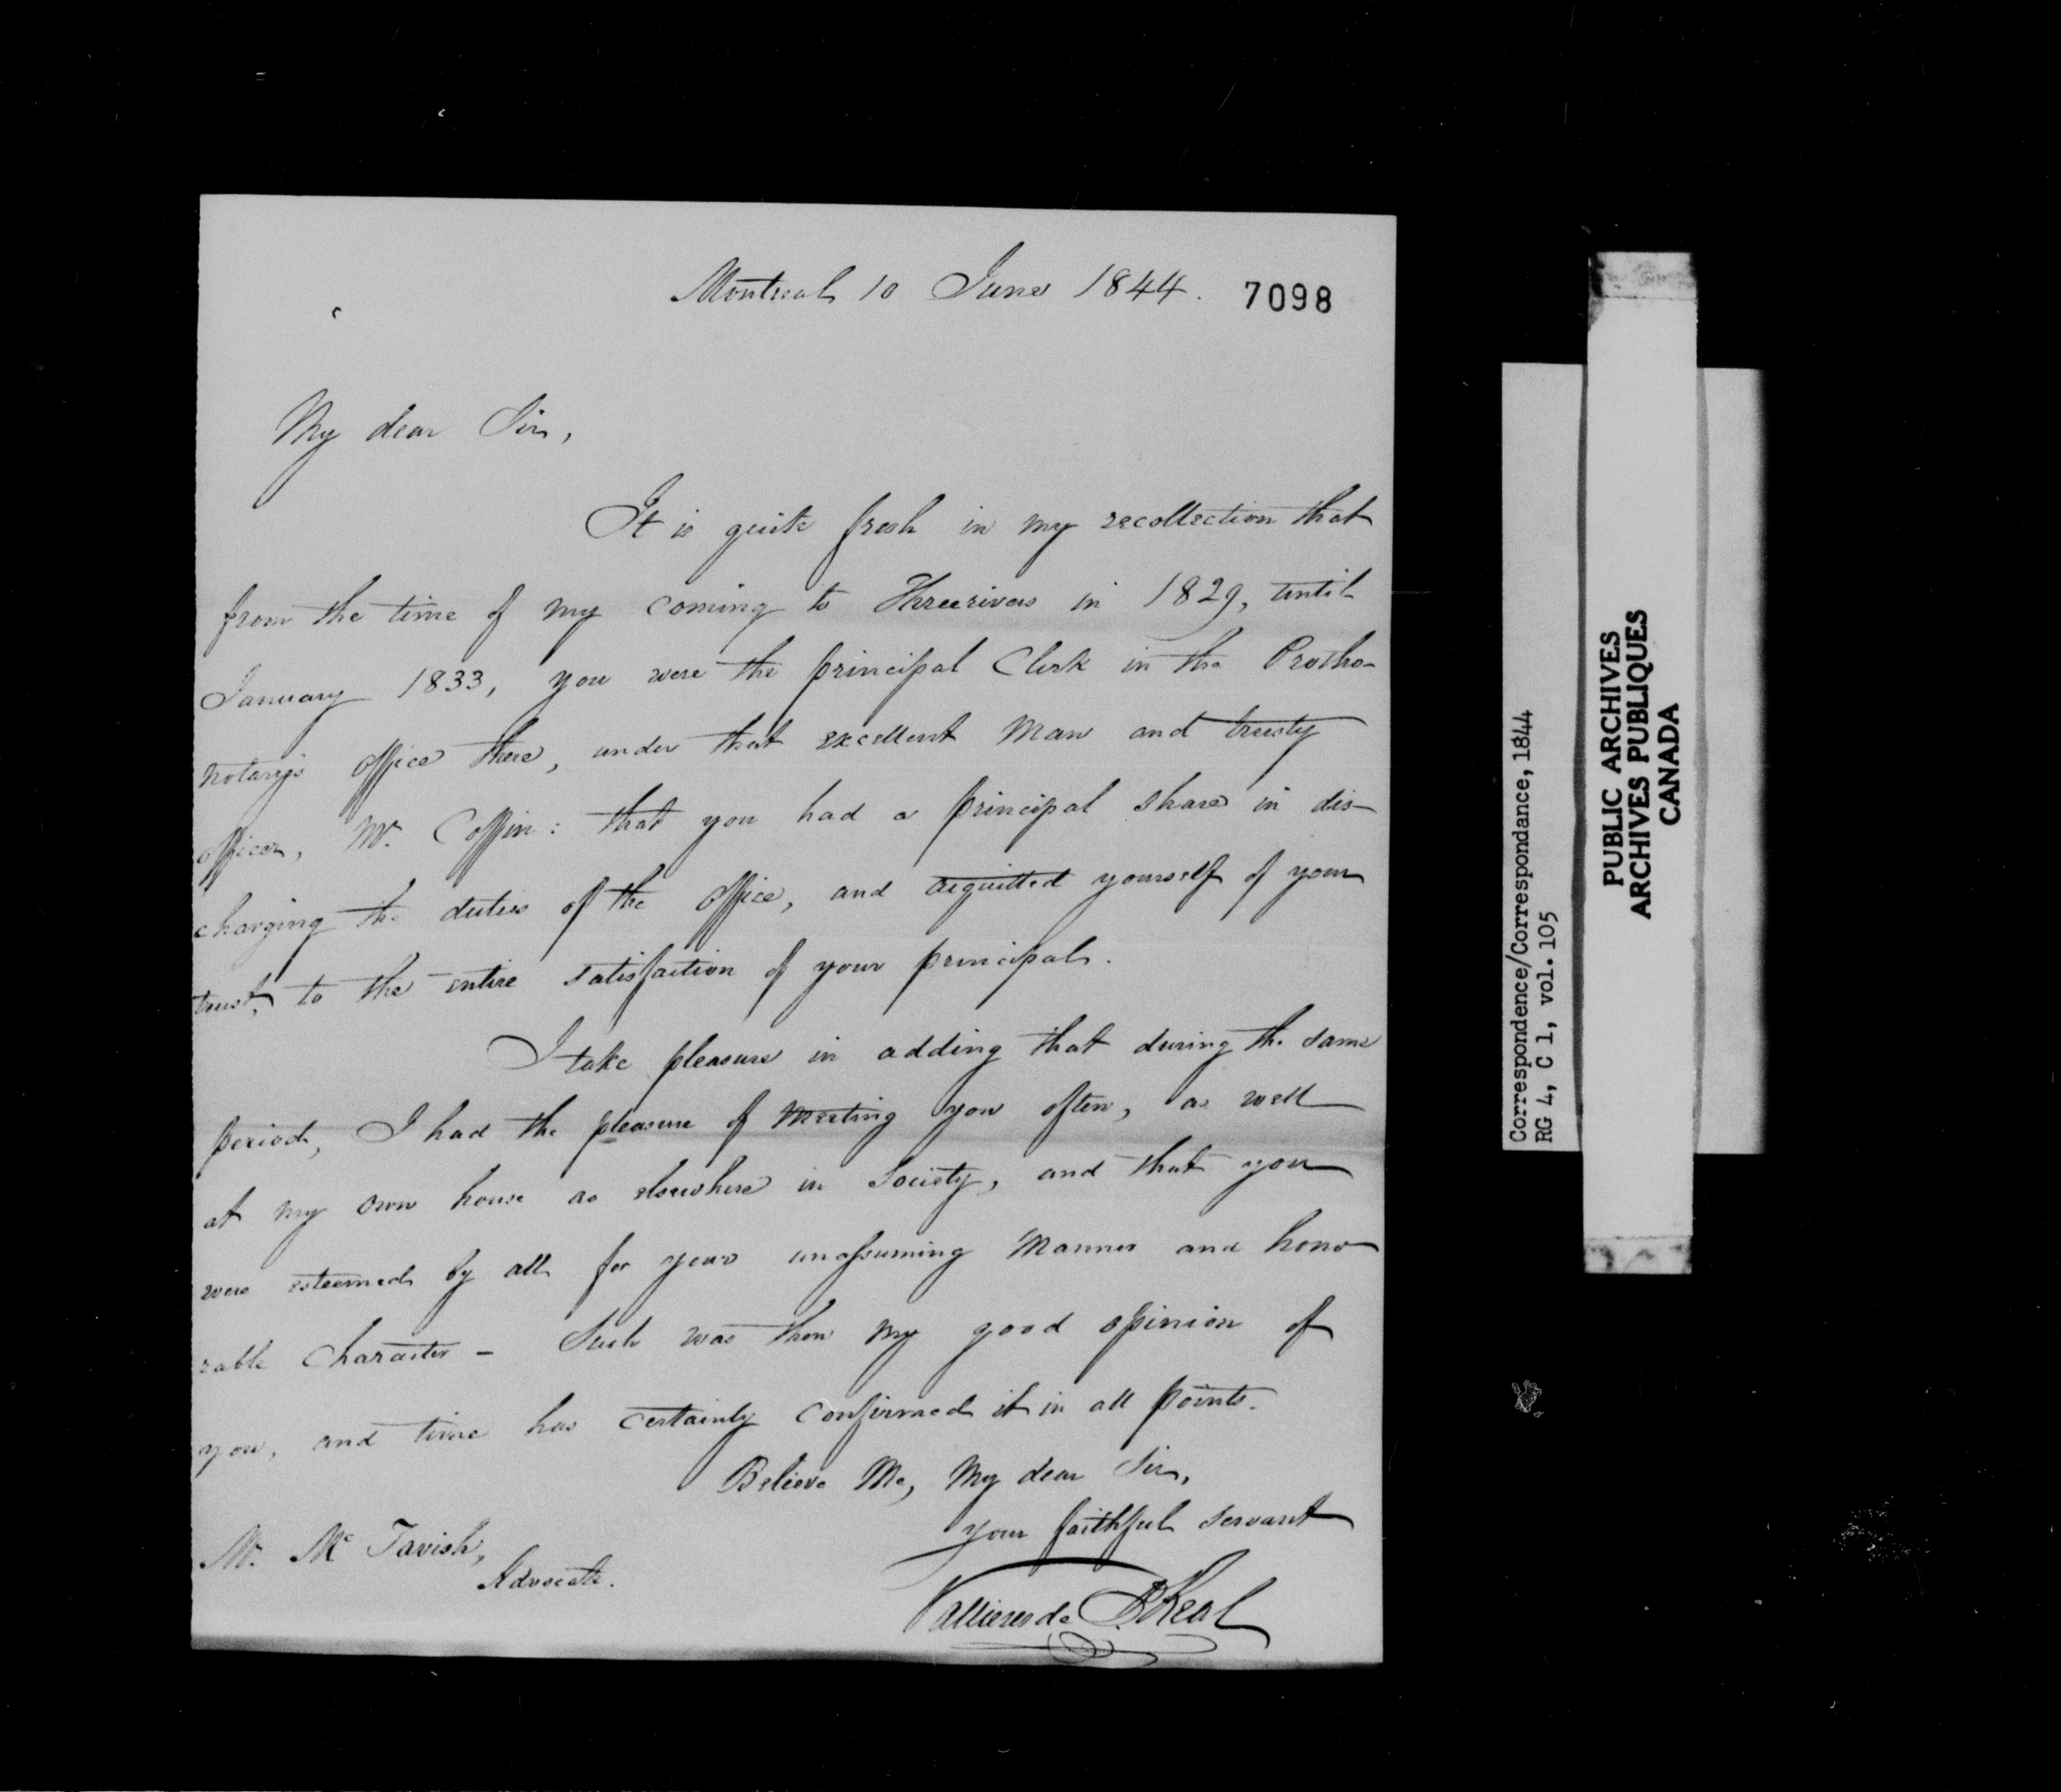 Montreal 10 June 1844.
7098
My dear Sir,
It is quite fresh in my recollection that
from the time of my coming to Threerivers in 1829, until
January 1833, you were the principal Clerk in the Protho-
notary's office there, under that excellent man and trusty
officer, Mr. Coffin: that you had a principal share in dis-
charging the duties of the office, and acquitted yourself of your
trust, to the entire satisfaction of your principal.
I take pleasure in adding that during the same
period, I had the pleasure of meeting you often, as well
at my own house as elsewhere in Society, and that you
were esteemed by all for your unassuming manner and hono-
rable character - Such was then my good opinion of
you, and time has certainly confirmed it in all points.
Believe Me, My dear Sir,
your faithful servant
Vallieres de St. Real
Mr. McTavish,
Advocate.
Correspondence/Correspondance, 1844
RG 4, C 1, vol. 105
PUBLIC ARCHIVES
ARCHIVES PUBLIQUES
CANADA